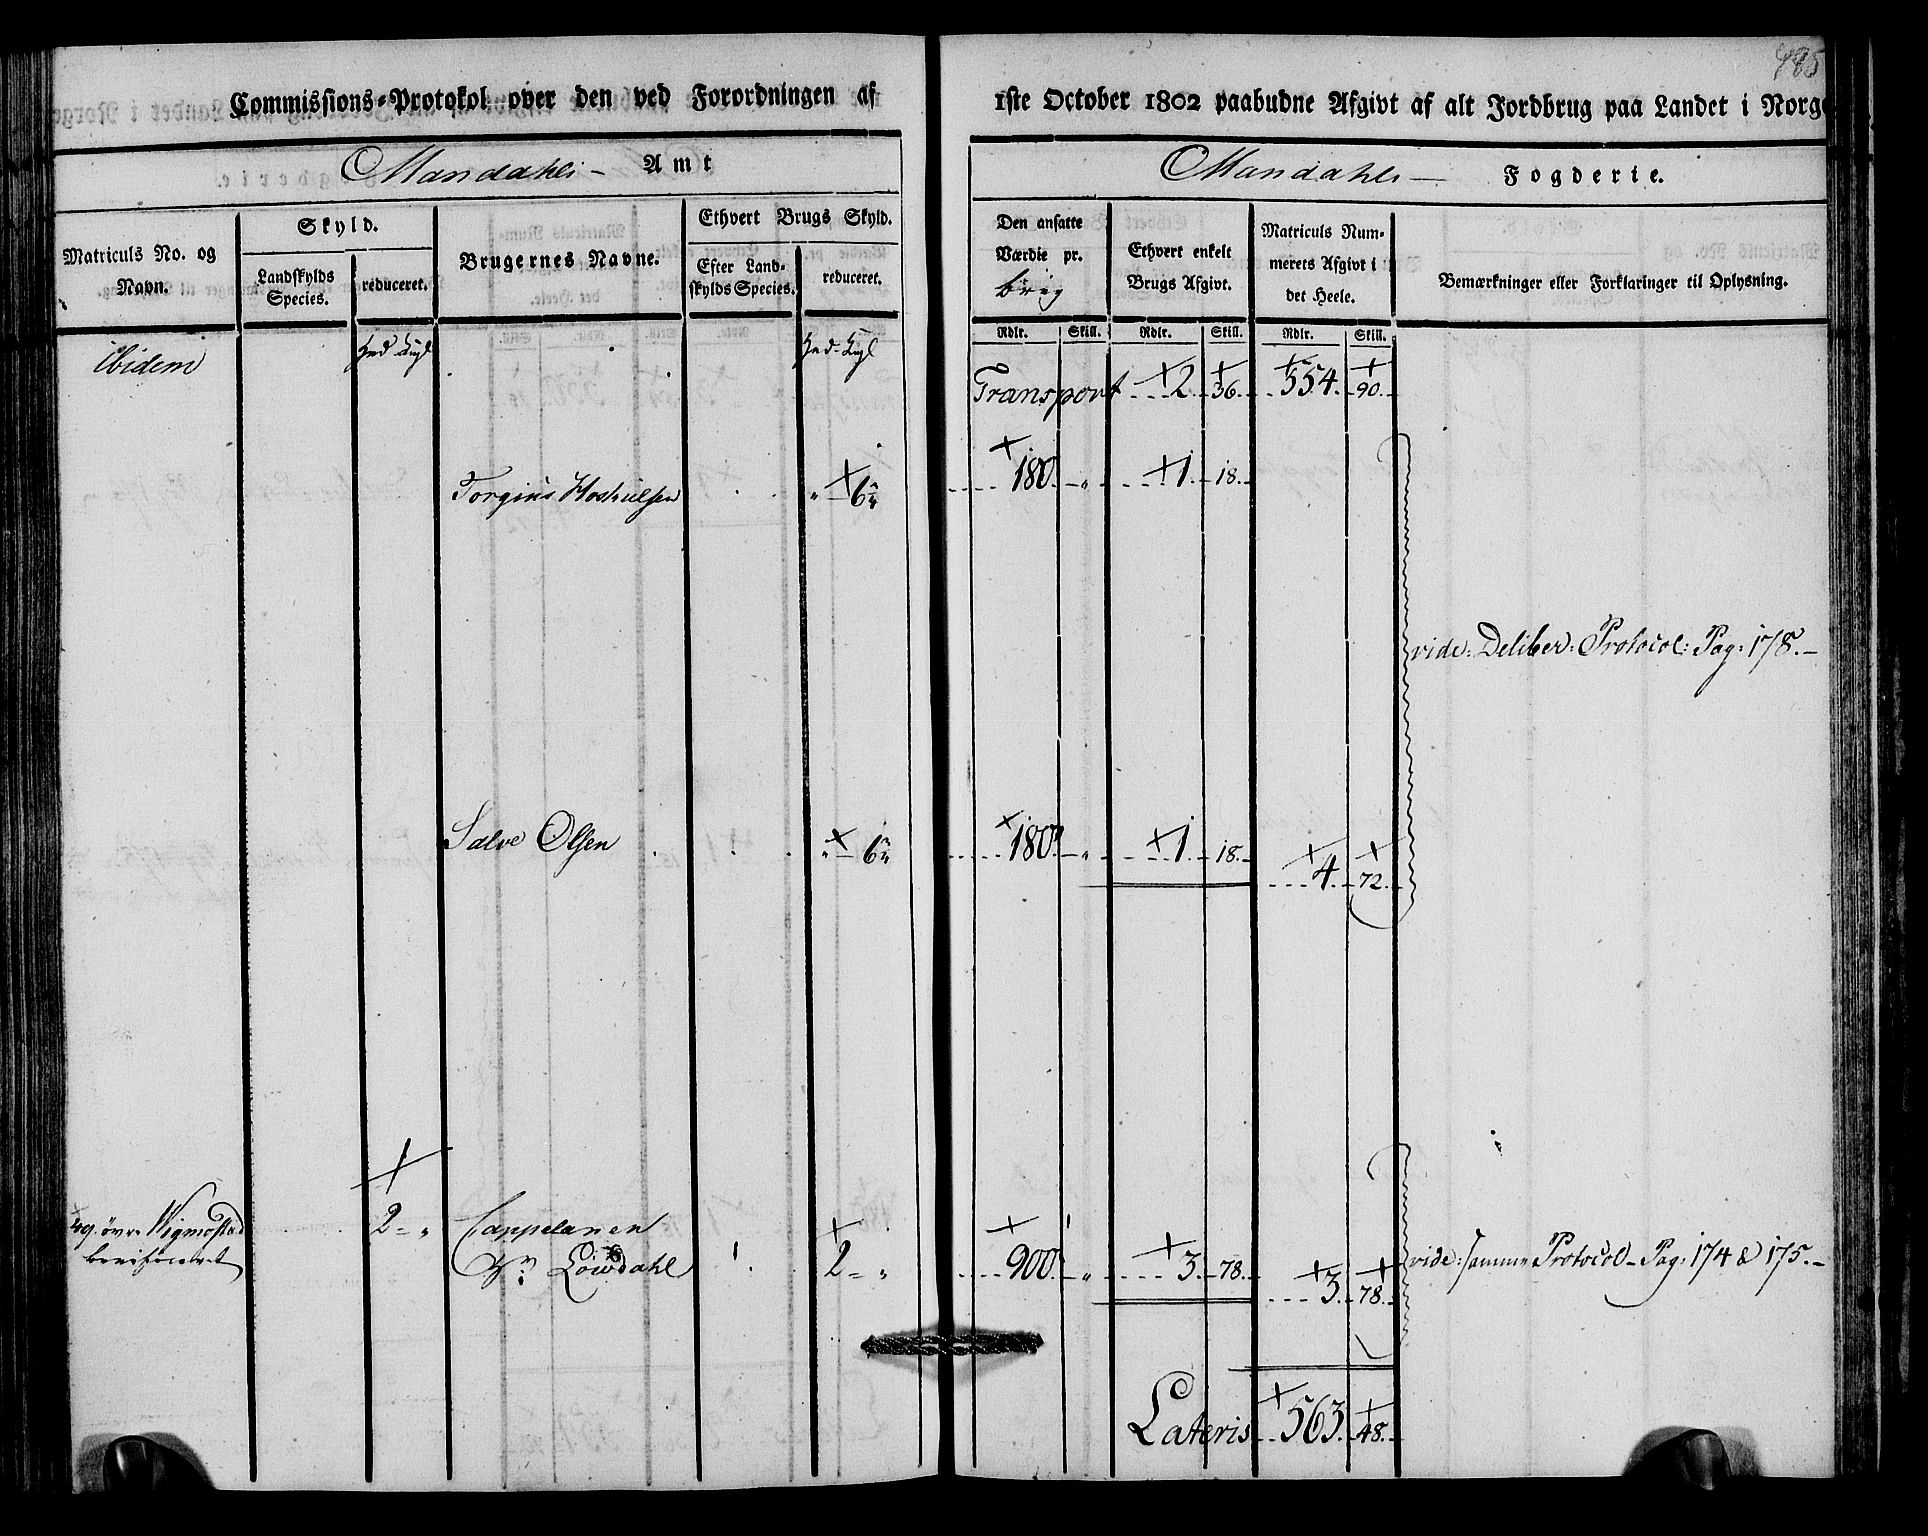 485
Commissions-Protokol over den ved Forordningen af 1ste October 1802 paabudne Afgivt af alt Jordbrug paa Landet i Norge
Mandahls - Amt
Mandahls - Fogderie.
Matriculs No. og Navn.
Skyld.
Landskylds Species.
reduceret.
Brugernes Navne.
Ethvert Brugs Skyld.
Efter Landskylds Species.
reduceret.
Den ansatte Værdie pr. brug
Ethvert enkelt Brugs Afgivt.
Matriculs Nummerets Afgivt i det Heele.
Bemærkninger eller Forklaringer til Oplysning.
Rdlr. Skill. Rdlr. Skill. Rdlr. Skill.
ibidem
Transport 2. 36. 554. 90.
Torgius 6 180 „ 1. 18.
vide: Deliber: Protocol: Pag: 178. -
Salve Olsen „ 6 180 „ 1. 18. 4. 72.
49. övre Wigmostad 2 - „ Cappelanen
Hr: Löwdahl 2 - „ 900 „ 3. 78. 3. 78. vide: samme Protocol - Pag: 174 & 175. -
Lateris 563. 48.